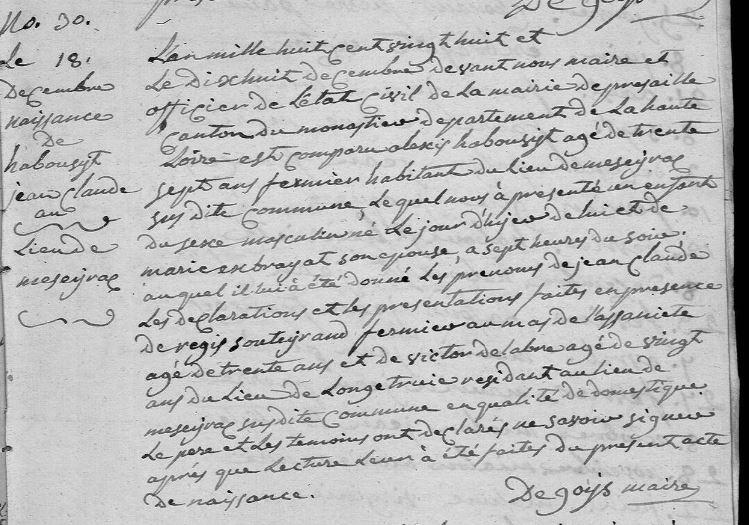 De goys
No. 30.
Le 18.
Decembre
naissance
De
habousyt
jean Claude
au
Lieu de
meseyrac
L'an mille huit cent vingt huit et
Le Dixhuit decembre devant nous maire et
officier de L'état Civil de La mairie de presaille
Canton du monastier departement de La haute
Loire est comparu alexis habousyt agé de trente
sept ans fermier habitant du Lieu de meseyrac
sus dite Commune, Lequel nous à presenté un enfant
du sexe masculin né Le jour d'hyer de lui et de
marie exbrayat son epouse, a sept heures du soir.
auquel il lui à été donné Les prenoms de jean Claude
Les declarations et les presentations faites en presence
De regis souteyrand fermier au mas de l'assaniete
agé de trente ans et de victor delabre agé de vingt
ans du Lieu de Longetruie residant au Lieu de
meseyrac sus dite Commune en qualité de domestique
Le pere et Les temoins ont declarés ne savoir signer
aprés que Lecture Leur à été faites du present acte
De naissance.
De goys maire